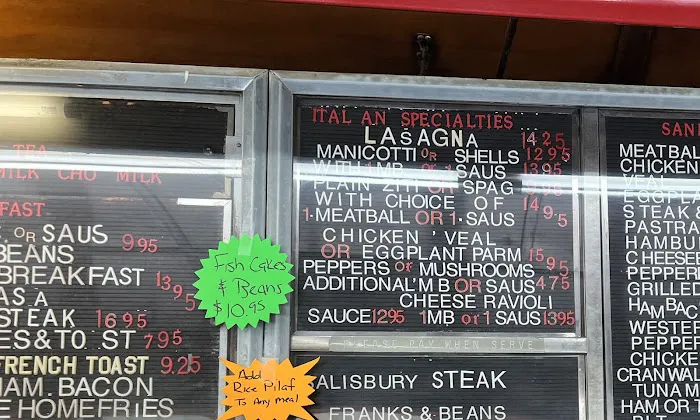 TEA
MILK CHO MILK
FAST
S OR SAUS 9.95
BEANS
BREAKFAST 13.95
AS A
STEAK 16.95
ES & TO ST 7.95
FRENCH TOAST 9.25
HAM. BACON
E HOMEFRIES
Fish Cakes
& Beans
$10.95
Add
Rice Pilaf
To Any meal
ITAL AN SPECIALTIES
LASAGNA 14.25
MANICOTTI OR SHELLS 12.95
WITH 1 MB or 1 SAUS 13.95
PLAIN ZITI OR SPAG 9.95
WITH CHOICE OF 14.95
1 MEATBALL OR 1 SAUS
CHICKEN ' VEAL
OR EGGPLANT PARM 15.95
PEPPERS or MUSHROOMS
ADDITIONAL' M B OR SAUS 4.75
CHEESE RAVIOLI
SAUCE 12.95 1MB or 1 SAUS 13.95
PLEASE PAY WHEN SERVE
ALISBURY STEAK
FRANKS & BEANS
SAN
MEATBAL
CHICKEN
VEAL
EGGPLA
STEAK &
PASTRA
HAMBU
CHEESEB
PEPPER
GRILLED
HAMBAC
WESTE
PEPPE
CHICKE
CRANWAL
TUNA M
HAM OR